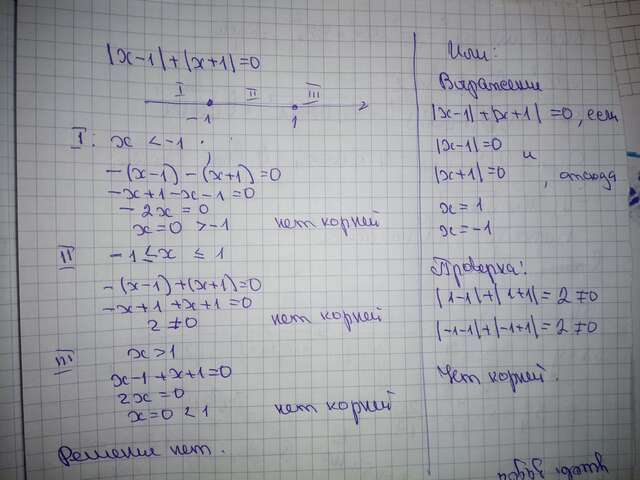 |x-1|+|x+1|=0
I II III
-1 1 x
I: x < -1
-(x-1) - (x+1) = 0
-x+1-x-1=0
-2x = 0
x=0 > -1 нет корней
II -1 ≤ x ≤ 1
-(x-1)+(x+1)=0
-x+1+x+1=0
2≠0 нет корней
III x>1
x-1+x+1=0
2x=0
x=0<1 нет корней
Решения нет.
Или:
Выражение
|x-1|+|x+1|=0, если
|x-1|=0 и
|x+1|=0, откуда
x=1
x=-1
Проверка:
|1-1|+|1+1|=2≠0
|-1-1|+|-1+1|=2≠0
Нет корней.